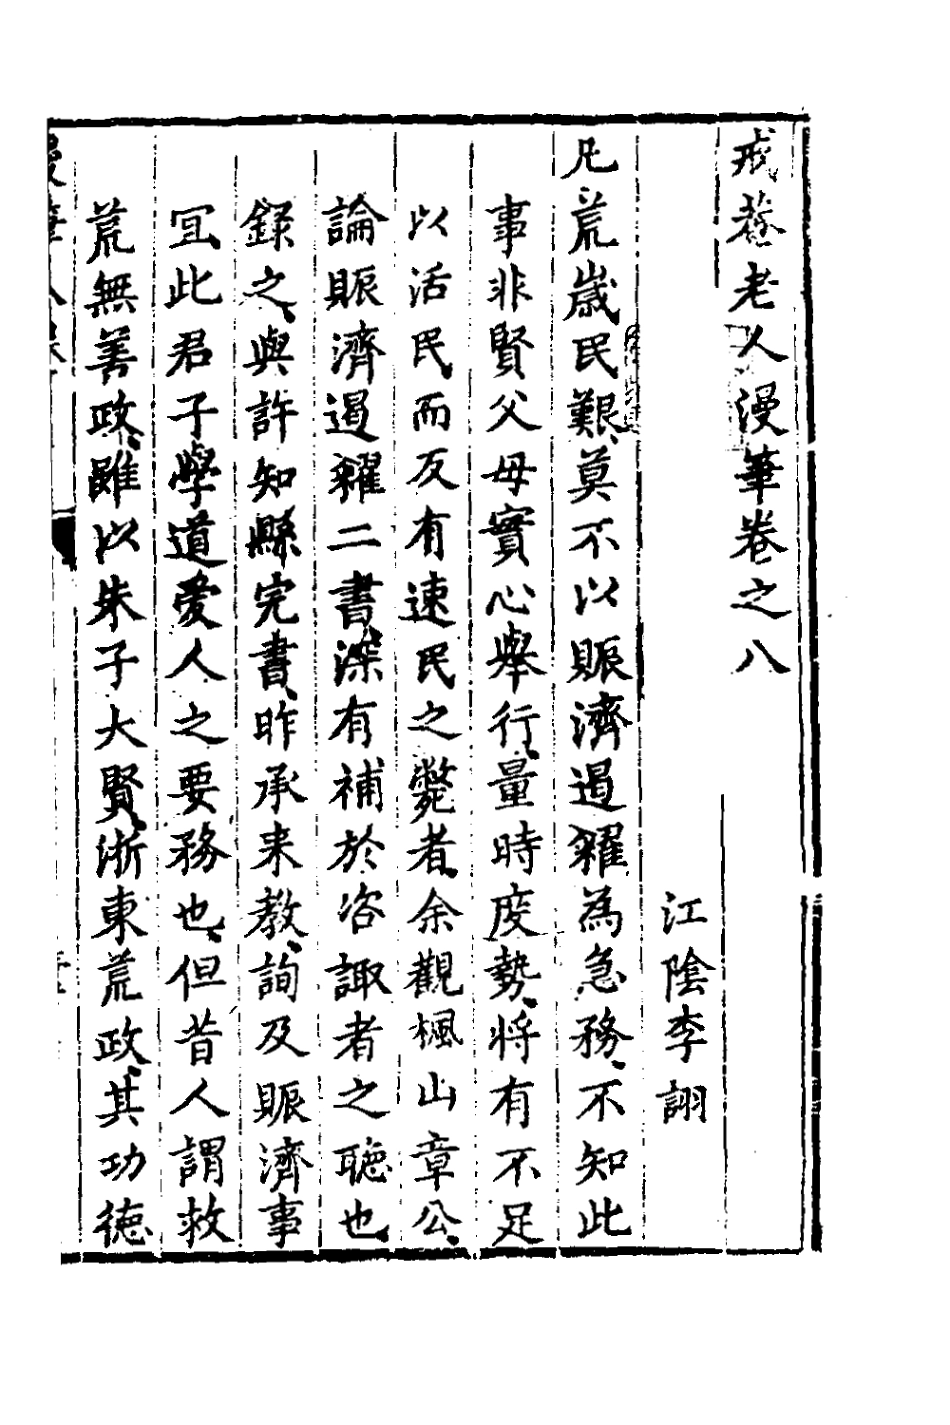 戒菴老人漫筆卷之八
江陰李詡
凡荒歲民艱莫不以賑濟遏糴為急務不知此
事非賢父母實心舉行量時度勢將有不足
以活民而反有速民之斃者余觀楓山章公
論賑濟遏糴二書深有補於咨諏者之聽也
錄之與許知縣完書昨承来教詢及賑濟事
冝此君子學道愛人之要務也但昔人謂救
荒無善政雖以朱子大賢浙東荒政其功徳